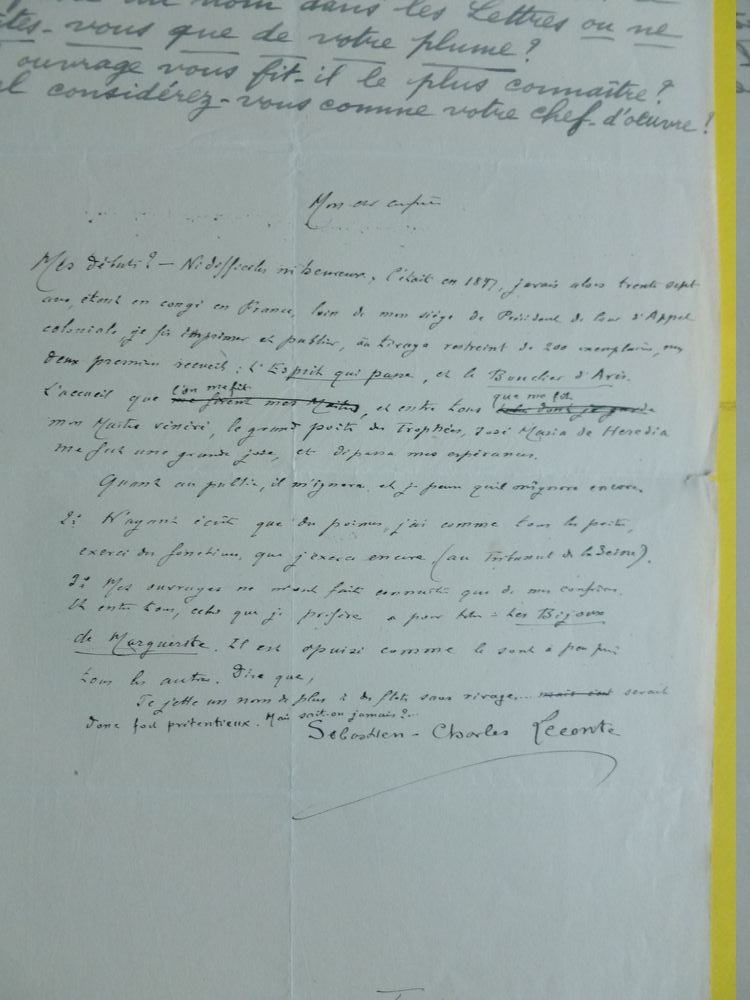 un nom dans les Lettres ou ne
tes-vous que de votre plume?
ouvrage vous fit-il le plus connaître?
l considérez-vous comme votre chef-d'œuvre?
Mon cher confrère
Mes débuts? — Ni difficiles ni heureux; c'était en 1897, j'avais alors trente sept
ans, étant en congé en France, loin de mon siège de Président de Cour d'Appel
coloniale, je fis imprimer et publier, au tirage restreint de 200 exemplaires, mes
deux premiers recueils: L'Esprit qui passe, et le Bouclier d'Arès.
L'accueil que l'on me fit me firent mes Maîtres, et entre tous que me fit celui dont je garde
mon Maître vénéré, le grand poète des Trophées, José Maria de Heredia
me fut une grande joie, et dépassa mes espérances.
Quant au public, il m'ignora et je pense qu'il m'ignore encore.
2: N'ayant écrit que des poèmes, j'ai comme tous les poètes,
exercé des fonctions, que j'exerce encore (au Tribunal de la Seine).
3: Mes ouvrages ne m'ont fait connaître que de mes confrères.
Et entre tous, celui que je préfère a pour titre: Les Bijoux
de Marguerite. Il est épuisé comme le sont à peu près
tous les autres. Dire que,
Je jette un nom de plus à des flots sans rivage... serait
donc fort prétentieux. Mais sait-on jamais?...
Sébastien-Charles Leconte